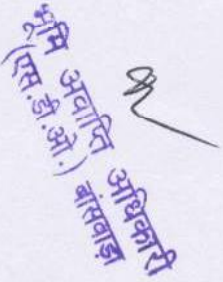 भूमि अवाप्ति अधिकारी
(एस.डी.ओ.) बांसवाड़ा